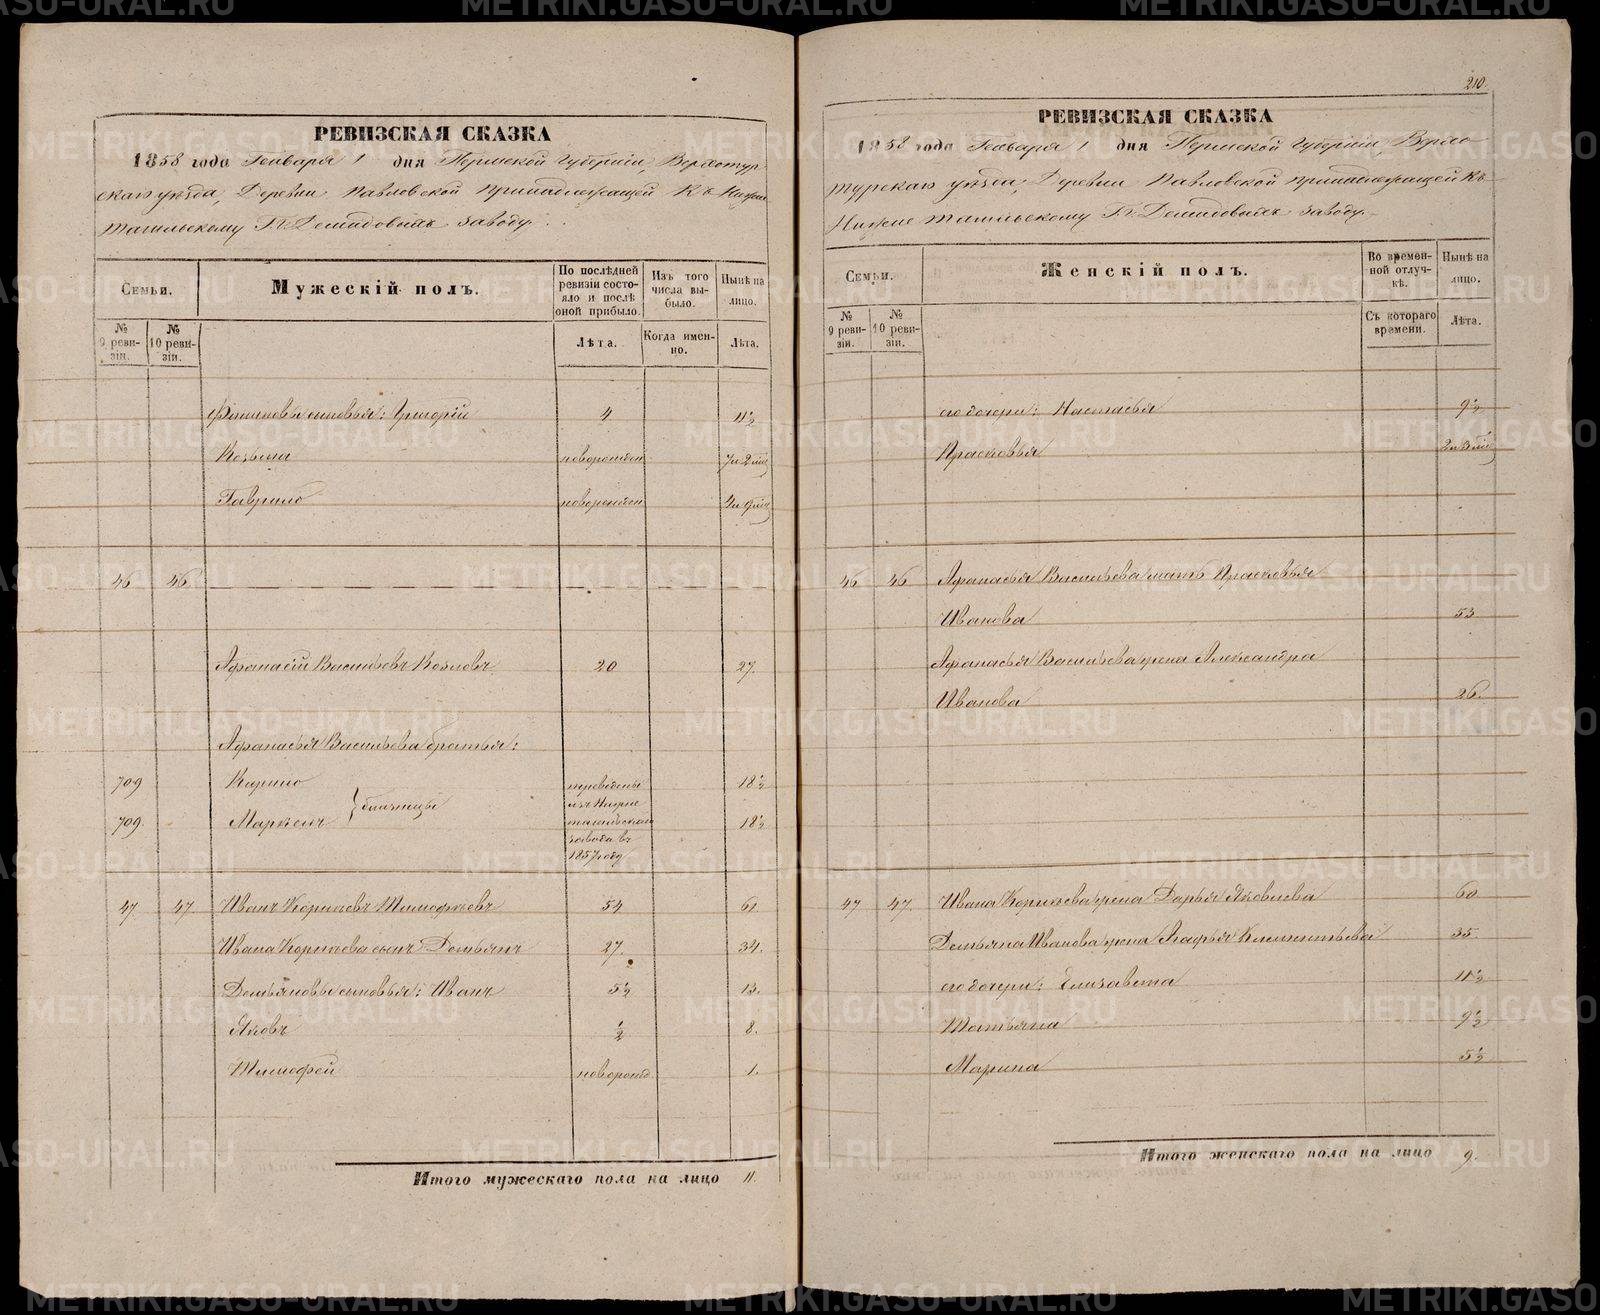 210.
РЕВИЗСКАЯ СКАЗКА
1858 года Генваря 1 дня Пермской Губерніи, Верхотур
скаго уѣзда, Деревни Павловской принадлежащей Къ Нижне
тагильскому Г.г. Демидовыхъ заводу.
Семьи.
Мужескій полъ.
По послѣдней ревизіи состояло и послѣ оной прибыло.
Изъ того числа выбыло.
Нынѣ на лицо.
№ 9 ревизіи.
№ 10 ревизіи.
Лѣта.
Когда именно.
Лѣта.
сыновья: Григорій 4 11½
Козьма новорожден 7и 2 мѣс
Гаврило новорожден 4и 9 мѣс
46 46
Афанасій Васильевъ Козловъ 20 27.
Афанасья Васильева братья:
709 Карпо 18½
709. Маркелъ } близнецы 18½
переведены
изъ Нижне
тагильскаго
завода въ
1857 году
47 47 Иванъ Корнѣевъ Тимофѣевъ 54 61
Ивана Корнѣева сынъ Демьянъ 27. 34.
Демьяновы сыновья: Иванъ 5½ 13.
Яковъ ½ 8.
Тимофей новорожд. 1.
Итого мужескаго пола на лицо 11.
РЕВИЗСКАЯ СКАЗКА
1858 года Генваря 1 дня Пермской Губерніи, Верхо
турскаго уѣзда, Деревни Павловской принадлежащей Къ
Нижнетагильскому Г.г. Демидовыхъ заводу.
Семьи.
Женскій полъ.
Во временной отлучкѣ.
Нынѣ на лицо.
№ 9 ревизіи.
№ 10 ревизіи.
Съ котораго времени.
Лѣта.
его дочери: Настасья 9½
Прасковья 2и 3 мѣс
46 46 Афанасья Васильева мать Прасковья
Иванова 53
Афанасья Васильева жена Александра
Иванова 26.
47 47. Ивана Корнѣева жена Дарья Яковлева 60
Демьяна Иванова жена Агафья Климентьева 35.
его дочери: Елизавета 11½
Татьяна 9½
Марина 5½
Итого женскаго пола на лицо 9.
METRIKI.GASO-URAL.RU